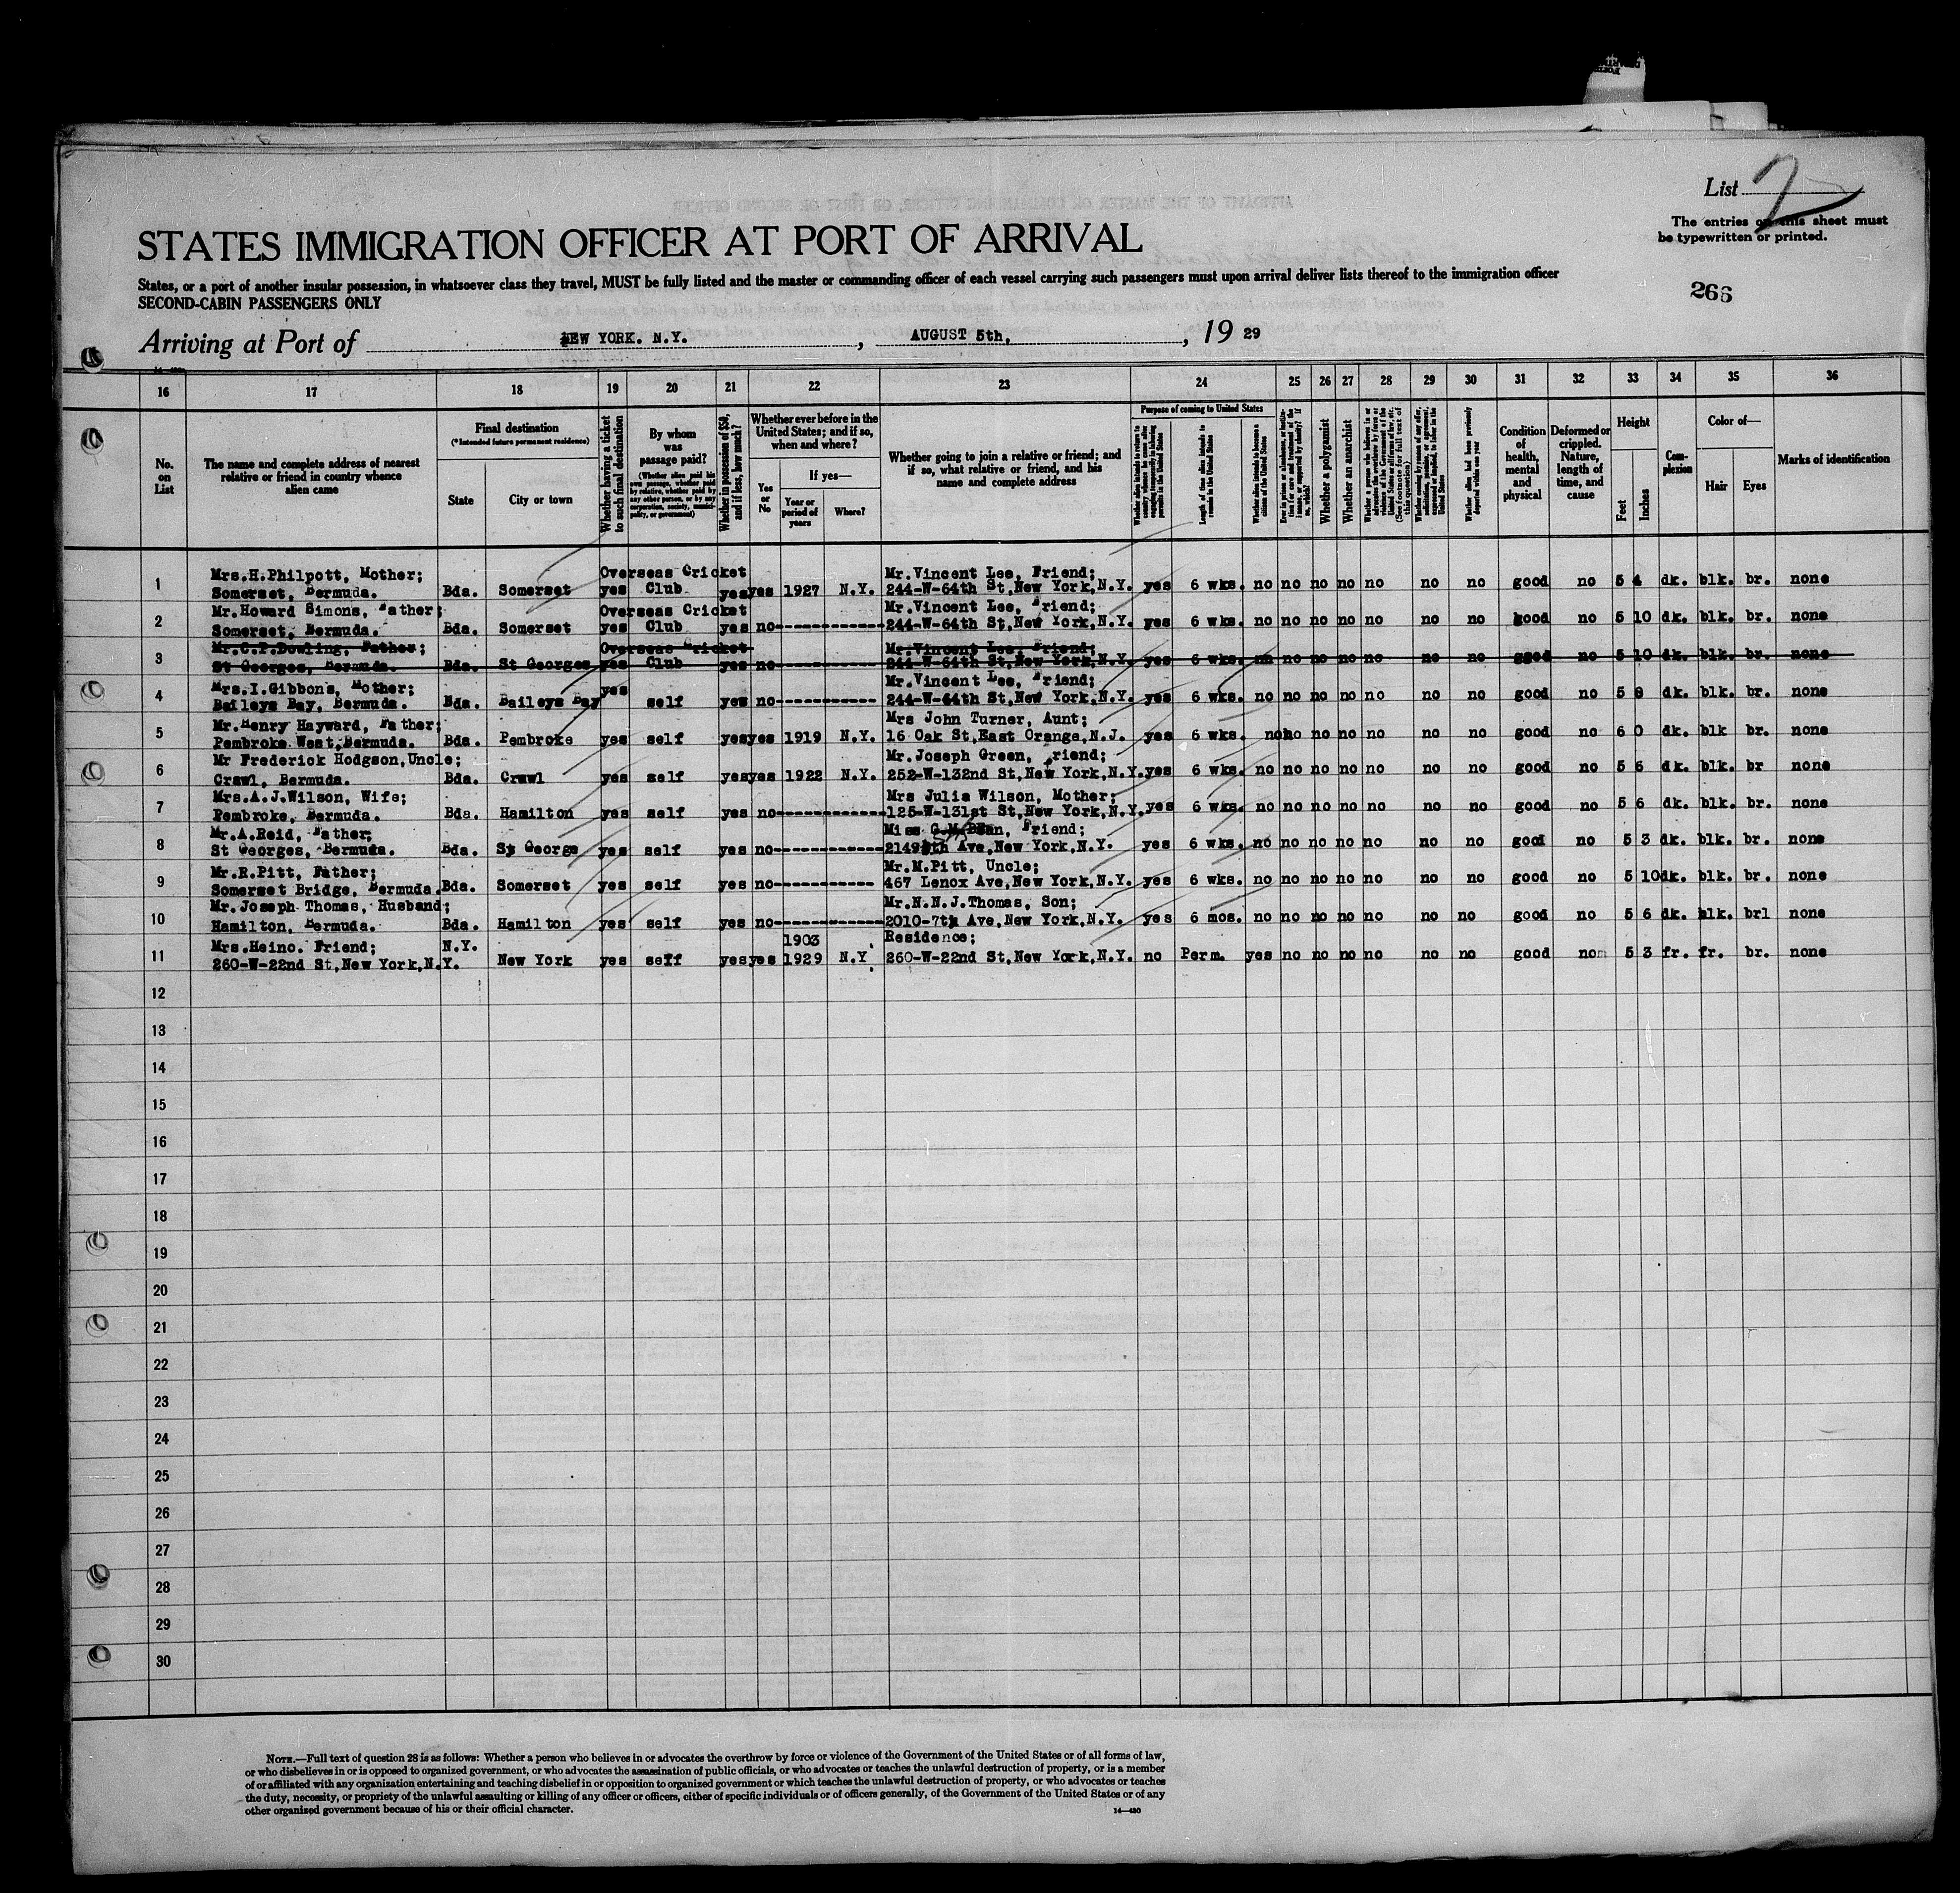 List 2
The entries on this sheet must
be typewritten or printed.
STATES IMMIGRATION OFFICER AT PORT OF ARRIVAL
States, or a port of another insular possession, in whatsoever class they travel, MUST be fully listed and the master or commanding officer of each vessel carrying such passengers must upon arrival deliver lists thereof to the immigration officer
SECOND-CABIN PASSENGERS ONLY
266
Arriving at Port of NEW YORK. N.Y. , AUGUST 5th. , 19 29
16 17 18 19 20 21 22 23 24 25 26 27 28 29 30 31 32 33 34 35 36
No. on List
The name and complete address of nearest relative or friend in country whence alien came
Final destination
(*Intended future permanent residence)
State
City or town
Whether having a ticket to such final destination
By whom was passage paid?
(Whether alien paid his own passage, whether paid by relative, whether paid by any other person, or by any corporation, society, municipality, or government)
Whether in possession of $50, and if less, how much?
Whether ever before in the United States; and if so, when and where?
Yes or No
If yes—
Year or period of years
Where?
Whether going to join a relative or friend; and if so, what relative or friend, and his name and complete address
Purpose of coming to United States
Whether alien intends to return to country whence he came after engaging temporarily in laboring pursuits in the United States
Length of time alien intends to remain in the United States
Whether alien intends to become a citizen of the United States
Whether a polygamist
Whether an anarchist
Whether alien had been previously deported within one year
Condition of health, mental and physical
Deformed or crippled. Nature, length of time, and cause
Height
Feet
Inches
Complexion
Color of—
Hair
Eyes
Marks of identification
Mrs.H.Philpott, Mother; Overseas Cricket Mr.Vincent Lee, Friend;
1 Somerset, Bermuda. Bda. Somerset yes Club yes yes 1927 N.Y. 244-W-64th St,New York,N.Y. yes 6 wks. no no no no no no no good no 5 4 dk. blk. br. none
Mr.Howard Simons, Father; Overseas Cricket Mr.Vincent Lee, Friend;
2 Somerset, Bermuda. Bda. Somerset yes Club yes no------------ 244-W-64th St,New York,N.Y. yes 6 wks. no no no no no no no good no 5 10 dk. blk. br. none
Mr.C.P.Dowling, Father; Overseas Cricket Mr.Vincent Lee, Friend;
3 St Georges, Bermuda. Bda. St Georges yes Club yes no------------ 244-W-64th St,New York,N.Y. yes 6 wks. no no no no no no no good no 5 10 dk. blk. br. none
Mrs.I.Gibbons, Mother; yes Mr.Vincent Lee, Friend;
4 Baileys Bay, Bermuda. Bda. Baileys Bay self yes no------------ 244-W-64th St,New York,N.Y. yes 6 wks. no no no no no no no good no 5 8 dk. blk. br. none
Mr.Henry Hayward, Father; Mrs John Turner, Aunt;
5 Pembroke West,Bermuda. Bda. Pembroke yes self yes yes 1919 N.Y. 16 Oak St,East Orange,N.J. yes 6 wks. no no no no no no no good no 6 0 dk. blk br. none
Mr Frederick Hodgson,Uncle; Mr.Joseph Green, Friend;
6 Crawl, Bermuda. Bda. Crawl yes self yes yes 1922 N.Y. 252-W-132nd St,New York,N.Y. yes 6 wks. no no no no no no no good no 5 6 dk. blk. br none
Mrs.A.J.Wilson, Wife; Mrs Julia Wilson, Mother;
7 Pembroke, Bermuda. Bda. Hamilton yes self yes no------------ 125-W-131st St,New York,N.Y. yes 6 wks. no no no no no no no good no 5 6 dk. blk. br. none
Mr.A.Reid, Father; Miss Friend;
8 St Georges, Bermuda. Bda. St George yes self yes no------------ 2149 8th Ave,New York,N.Y. yes 6 wks. no no no no no no no good no 5 3 dk. blk. br. none
Mr.R.Pitt, Father; Mr.M.Pitt, Uncle;
9 Somerset Bridge, Bermuda. Bda. Somerset yes self yes no------------ 467 Lenox Ave,New York,N.Y. yes 6 wks. no no no no no no no good no 5 10 dk. blk. br. none
Mr.Joseph Thomas, Husband; Mr.N.N.J.Thomas, Son;
10 Hamilton, Bermuda. Bda. Hamilton yes self yes no------------ 2010-7th Ave,New York,N.Y. yes 6 mos. no no no no no no no good no 5 6 dk. blk. brl none
Mrs.Heino. Friend; N.Y. 1903 Residence;
11 260-W-22nd St,New York,N.Y. New York yes self yes yes 1929 N.Y 260-W-22nd St,New York,N.Y. no Perm. yes no no no no no no good no 5 3 fr. fr. br. none
12
13
14
15
16
17
18
19
20
21
22
23
24
25
26
27
28
29
30
NOTE.—Full text of question 28 is as follows: Whether a person who believes in or advocates the overthrow by force or violence of the Government of the United States or of all forms of law,
or who disbelieves in or is opposed to organized government, or who advocates the assassination of public officials, or who advocates or teaches the unlawful destruction of property, or is a member
of or affiliated with any organization entertaining and teaching disbelief in or opposition to organized government or which teaches the unlawful destruction of property, or who advocates or teaches
the duty, necessity, or propriety of the unlawful assaulting or killing of any officer or officers, either of specific individuals or of officers generally, of the Government of the United States or of any
other organized government because of his or their official character.
14—430